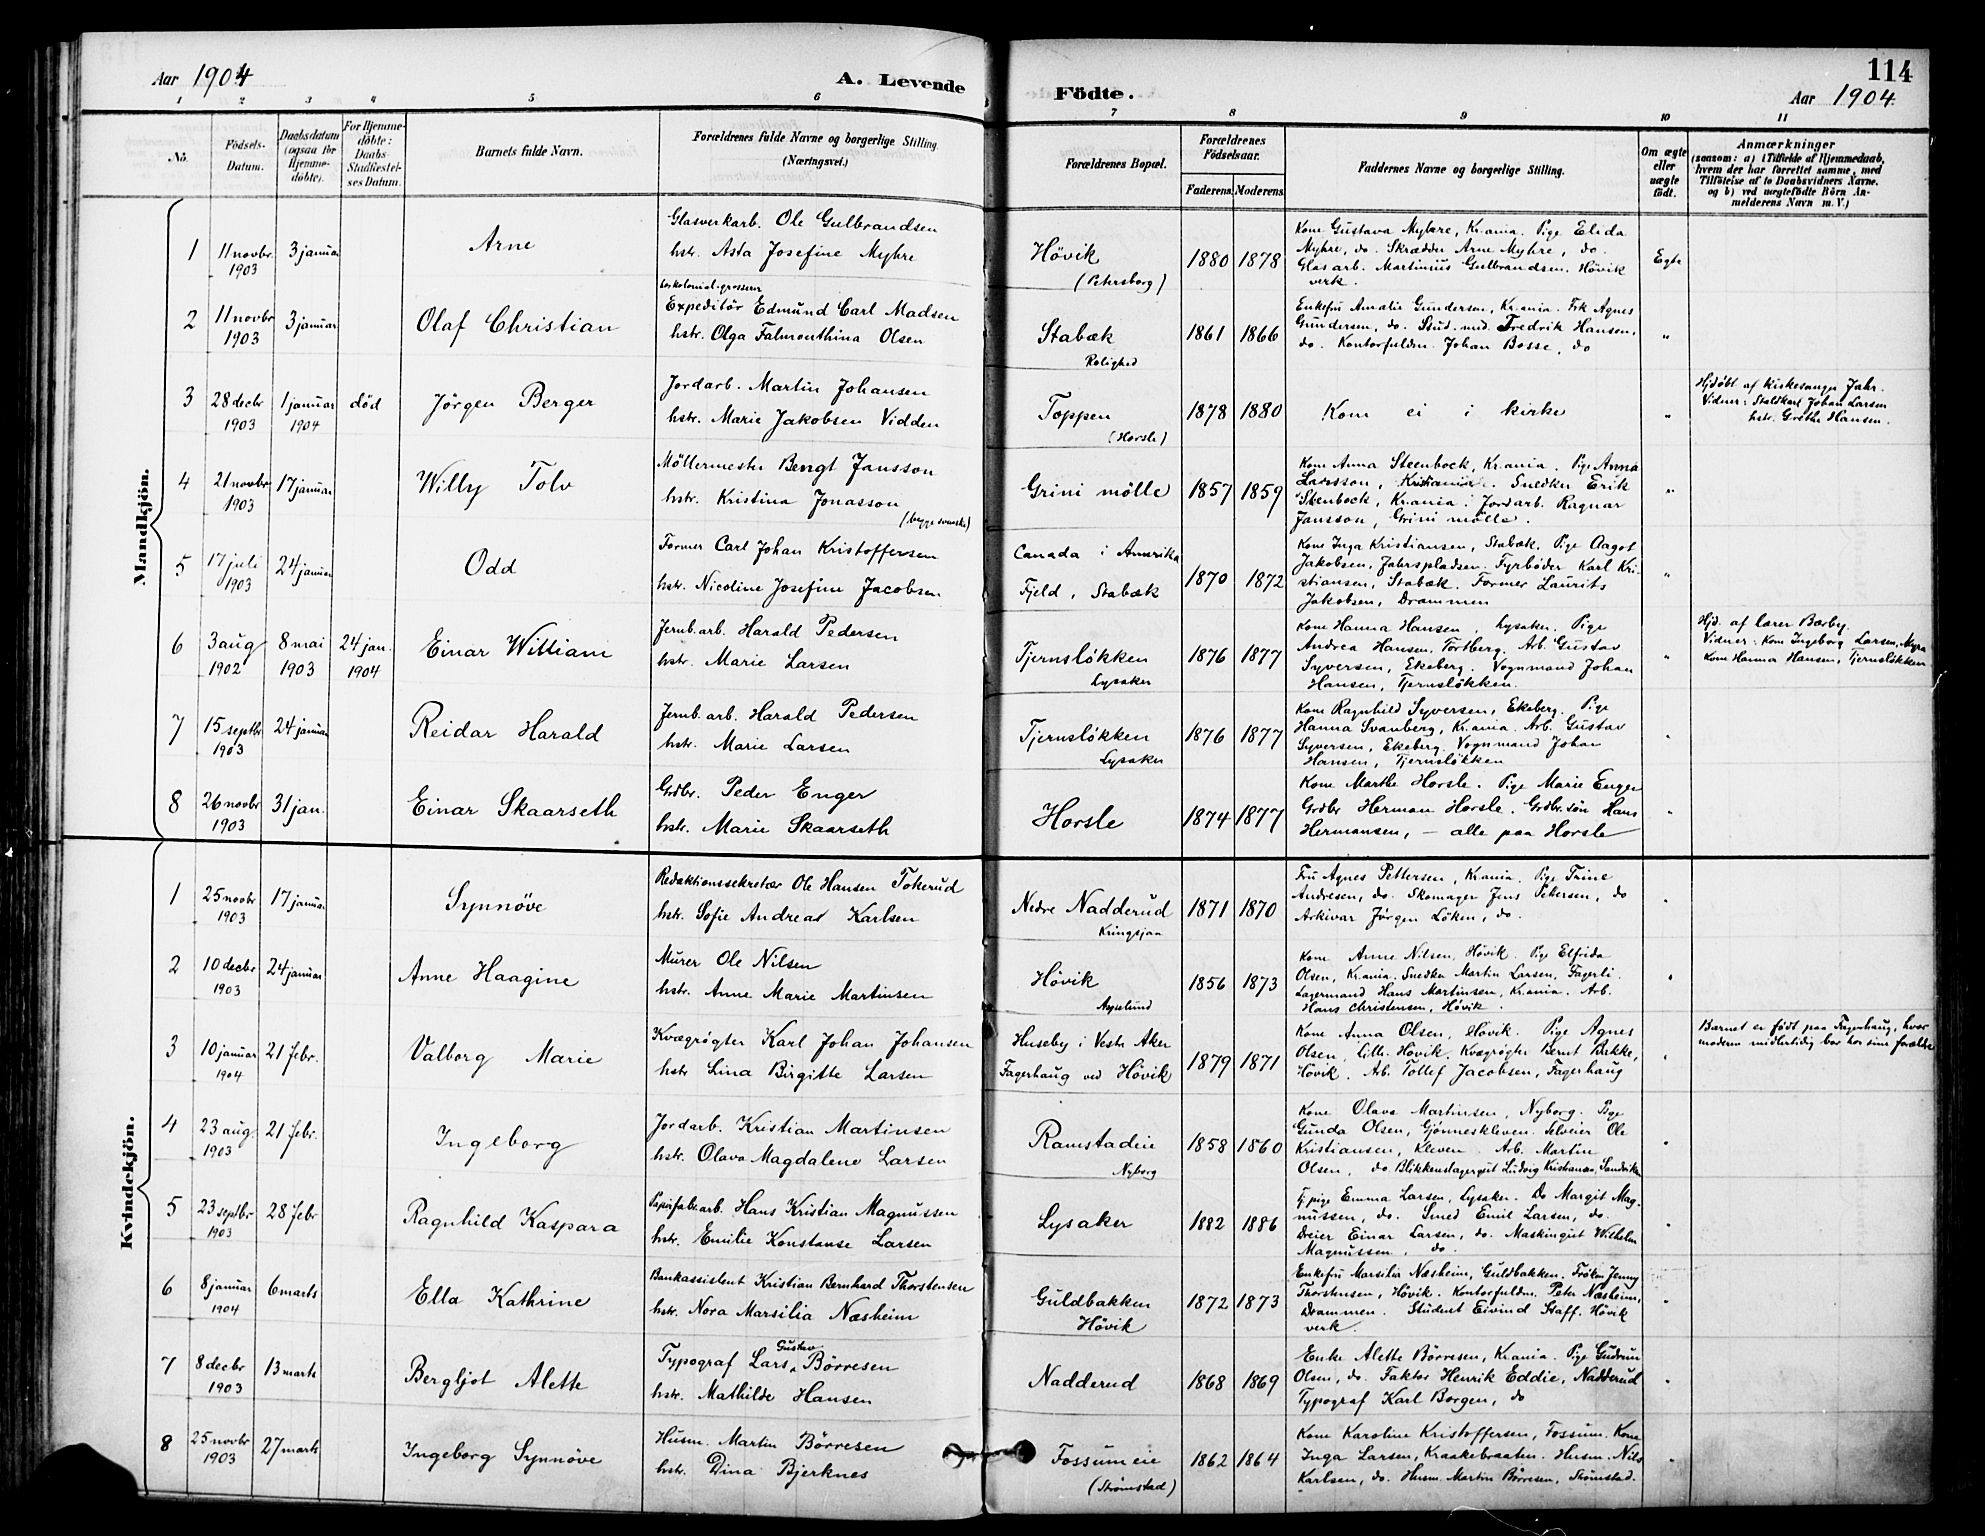 Aar 1904
A. Levende
Födte.
114
Aar 1904
1 2 3 4 5 6 7 8 9 10 11
No.
Födsels-Datum.
Daabsdatum (ogsaa for Hjemme-döbte).
For Hjemme-döbte: Daabs-Stadfæstel-ses Datum.
Barnets fulde Navn.
Forældrenes fulde Navne og borgerlige Stilling (Næringsvei.)
Forældrenes Bopæl.
Forældrenes Födselsaar.
Faderens. Moderens.
Faddernes Navne og borgerlige Stilling.
Om ægte eller uægte födt.
Anmærkninger
(saasom: a) i Tilfælde af Hjemmedaab,
hvem der har forrettet samme, med
Tilföielse af to Daabsvidners Navne.
og b) ved uægtefödte Börn An-
melderens Navn m. V.)
Mandkjön.
1 11 novbr 1903 3 januar Arne
Glasverkarb. Ole Gulbrandsen
hstr. Asta Josefine Myhre
Høvik
(Petersborg)
1880 1878
Kone Gustava Myhre, Kr.ania. Pige Elida
Myhre, do. Skrædder Arne Myhre, do.
Glasarb. Martinius Gulbrandsen. Høvik
verk.
Egte
2 11 novbr 1903 3 januar Olaf Christian
Expeditör Edmund Carl Madsen
hstr. Olga Falmouthina Olsen
Stabæk
Rolighed
1861 1866
Enkefru Amalie Gundersen, Kr.ania. Frk Agnes
Gundersen, do. Stud. med. Fredrik Hansen,
do. Kontorfuldm. Johan Bosse, do
"
3 28 decbr 1903 1 januar 1904 død Jörgen Berger
Jordarb. Martin Johansen
hstr. Marie Jakobsen Vidden
Toppen
(Horsle)
1878 1880
Kom ei i kirke
"
Hjdöbt af Kirkesanger Jahr.
Vidner: Staldkarl Johan Larsen
hstr. Grethe Hansen.
4 21 novbr 1903 17 januar Willy Tolv
Möllermester Bengt Jansson
hstr. Kristina Jonasson
(begge svenske)
Grini mölle
1857 1859
Kone Anna Steenbock, Kr.ania. Pige Anna
Larsson, Kristiania. Snedker Erik
Stenbock, Kr.ania. Jordarb. Ragnar
Jansson, Grini mölle.
"
5 17 juli 1903 24 januar Odd
Former Carl Johan Kristoffersen
hstr. Nicoline Josefine Jacobsen
Canada i Amerika
Fjeld, Stabæk
1870 1872
Kone Inga Kristiansen, Stabæk. Pige Aagot
Jakobsen, Jahrspladsen. Fyrbøder Karl Kri-
stiansen, Stabæk. Former Laurits
Jakobsen, Drammen
"
6 3 aug 1902 8 mai 1903 24 jan. 1904 Einar William
Jernb.arb. Harald Pedersen
hstr. Marie Larsen
Tjernsløkken
Lysaker
1876 1877
Kone Hanna Hansen Lysaker. Pige
Andrea Hansen, Tortberg. Arb. Gustav
Syversen, Ekeberg. Vognmand Johan
Hansen, Tjernsløkken.
"
Hjd. af lærer Bærby.
Vidner: Kone Ingeborg Larsen, Myra
Kone Hanna Hansen, Tjernsløkken
7 15 septbr 1903 24 januar Reidar Harald
Jernb.arb. Harald Pedersen
hstr. Marie Larsen
Tjernsløkken
Lysaker
1876 1877
Kone Ragnhild Syversen, Ekeberg. Pige
Hanna Svanberg, Kr.ania. Arb. Gustav
Syversen, Ekeberg. Vognmand Johan
Hansen, Tjernsløkken
"
8 26 novbr 1903 31 jan. Einar Skaarseth
Grdbr. Peder Enger
hstr. Marie Skaarseth
Horsle
1874 1877
Kone Marthe Horsle. Pige Marie Enger
Grdbr Herman Horsle. Grdbr.søn Hans
Hermansen, – alle paa Horsle
"
Kvindekjön.
1 25 novbr 1903 17 januar Synnöve
Redaktionssekretær Ole Hansen Tokerud
hstr. Sofie Andrea Karlsen
Nedre Nadderud
Kringsjaa
1871 1870
Fru Agnes Pettersen, Kr.ania. Pige Trine
Andresen, do. Skomager Jens Petersen, do
Arkivar Jörgen Löken, do.
"
2 10 decbr 1903 24 januar Anne Haagine
Murer Ole Nilsen
hstr. Anne Marie Martinsen
Høvik
1856 1873
Kone Anne Nilsen, Høvik. Pige Elfrida
Olsen, Kr.ania. Snedker Martin Larsen, Fagerli.
Lagermand Hans Martinsen, Kr.ania. Arb.
Hans Christensen, Høvik.
"
3 10 januar 1904 21 febr. Valborg Marie
Kvægrögter Karl Johan Johansen
hstr Lina Birgitte Larsen
Huseby i Vestre Aker
Fagerhaug ved Høvik
1879 1871
Kone Anna Olsen, Høvik. Pige Agnes
Olsen, Lille Høvik. Kvægrögter Bernt Bakke,
Høvik. Arb. Tollef Jacobsen, Fagerhaug
"
Barnet er født paa Fagerhaug, hvor
moderen midlertidig bor hos sine forældre
4 23 aug. 1903 21 febr. Ingeborg
Jordarb. Kristian Martinsen
hstr. Olava Magdalene Larsen
Ramstadeie
Nyborg
1858 1860
Kone Olava Martinsen, Nyborg. Pige
Gunda Olsen, Gjönneskleven. Selveier Ole
Kristiansen, Kleven. Arb. Martin
Olsen, do. Blikkenslagersvt Ludvig Kristiansen, Sandviken
"
5 23 septbr 1903 28 febr Ragnhild Kaspara
Papirfabr.arb. Hans Kristian Magnussen
hstr. Emilie Konstanse Larsen
Lysaker
1882 1886
Tj.pige Emma Larsen, Lysaker. Do Margit Mag-
nussen, do. Smed Emil Larsen, do.
Dreier Einar Larsen, do. Maskingut Wilhelm
Magnussen, do.
"
6 8 januar 1904 6 marts Ella Kathrine
Bankassistent Kristian Bernhard Thorstensen
hstr. Nora Marsilia Næsheim
Guldbakken
Høvik
1872 1873
Enkefru Marsilia Næsheim, Guldbakken. Fröken Jenny
Thorstensen, Høvik. Kontorfuldm. Peter Næsheim,
Drammen. Student Eivind Staff. Høvik
verk.
"
7 8 decbr 1903 13 marts Bergljot Alette
Typograf Lars Gustav Börresen
hstr. Mathilde Hansen
Nadderud
1868 1869
Enke Alette Börresen, Kr.ania. Pige Gudrun
Olsen, do. Faktor Henrik Eddie, Nadderud
Typograf Karl Borgen, do
"
8 25 novbr 1903 27 marts Ingeborg Synnöve
Husm. Martin Börresen
hstr. Dina Bjerknes
Fossumeie
(Strömstad)
1862 1864
Kone Karoline Kristoffersen, Fossum. Kone
Inga Larsen, Kraakebraaten. Husm. Nils
Karlsen, do. Husm. Martin Börresen, Strömstad.
"